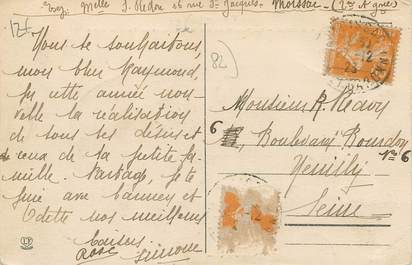 Melle S. Redon 16 rue St Jacques. Moissac. (Tn et Gne)
12f
82
Vous te souhaitons,
mon cher Raymond,
en cette année nou-
velle la réalisation
de tous tes désirs et
de ceux de ta petite fa-
mille. Partage, je te
prie avec
Odette nos meilleurs
baisers
Rose Simone
Monsieur R.
6, Boulevard Bourdon
No 6
Neuilly
Seine
12
12
LP